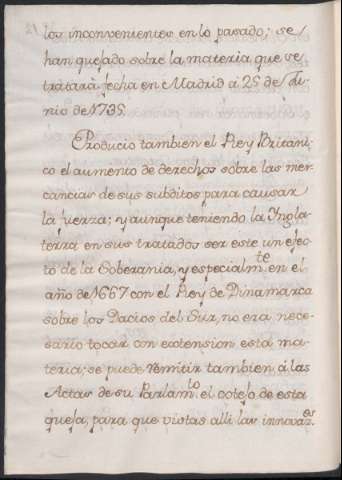 los inconvenientes en lo pasado; se
han quejado sobre la materia que se
tratara fecha en Madrid à 25 de Ju-
nio de 1735.
Producio tambien el Rey Britani-
co el aumento de derechos sobre las mer-
cancias de sus subditos para causar
la fuerza; y aunque teniendo la Ingla-
terra en sus tratados ser este un efec-
to de la Soberania, y especialm.te en el
año de 1667 con el Rey de Dinamarca
sobre los Dacios del Sur, no era nece-
sario tocar con extension esta ma-
teria; se puede remitir tambien, á las
Actas de su Parlam.to el cotejo de esta
queja, para que vistas alli las innovaz.es